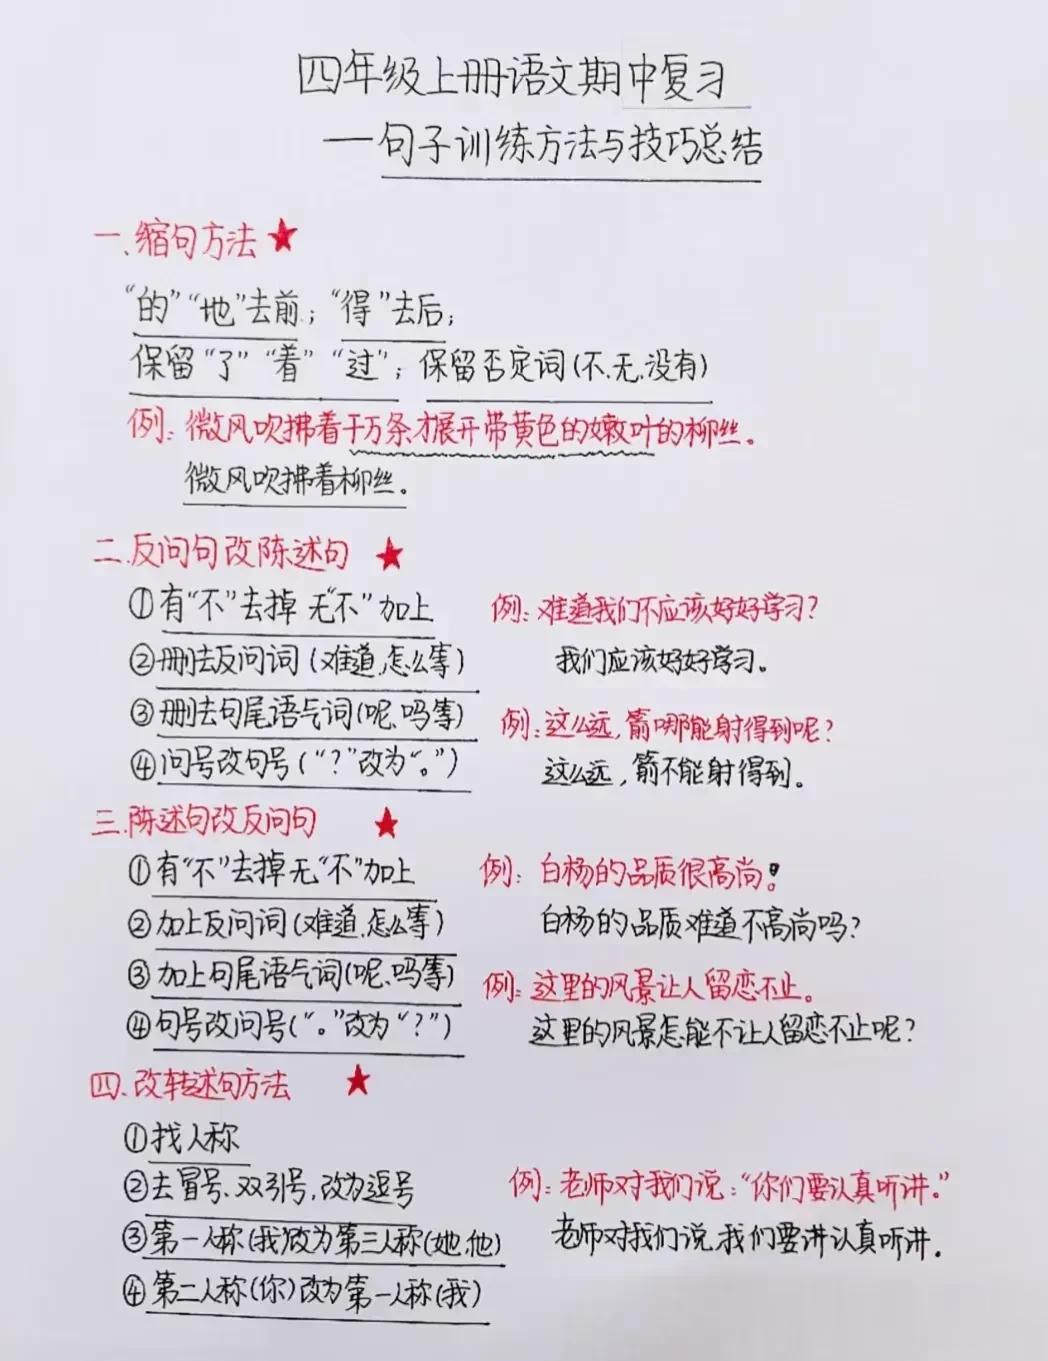 四年级上册语文期中复习
—句子训练方法与技巧总结
一、缩句方法
“的”“地”去前；“得”去后；
保留“了”“着”“过”；保留否定词(不、无、没有)
例：微风吹拂着千万条才展开带黄色的嫩叶的柳丝。
微风吹拂着柳丝。
二、反问句改陈述句
①有“不”去掉 无“不”加上
例：难道我们不应该好好学习？
②删去反问词（难道,怎么等）
我们应该好好学习。
③删去句尾语气词(呢、吗等)
例：这么远，箭哪能射得到呢？
④问号改句号(“？”改为“。”)
这么远，箭不能射得到。
三、陈述句改反问句
①有“不”去掉无“不”加上
例：白杨的品质很高尚。
②加上反问词(难道,怎么等)
白杨的品质难道不高尚吗？
③加上句尾语气词(呢、吗等)
例：这里的风景让人留恋不止。
④句号改问号(“。”改为“？”)
这里的风景怎能不让人留恋不止呢？
四、改转述句方法
①找人称
②去冒号、双引号,改为逗号
例：老师对我们说：“你们要认真听讲。”
③第一人称(我)改为第三人称(她,他)
老师对我们说,我们要讲认真听讲.
④第二人称(你)改为第一人称(我)